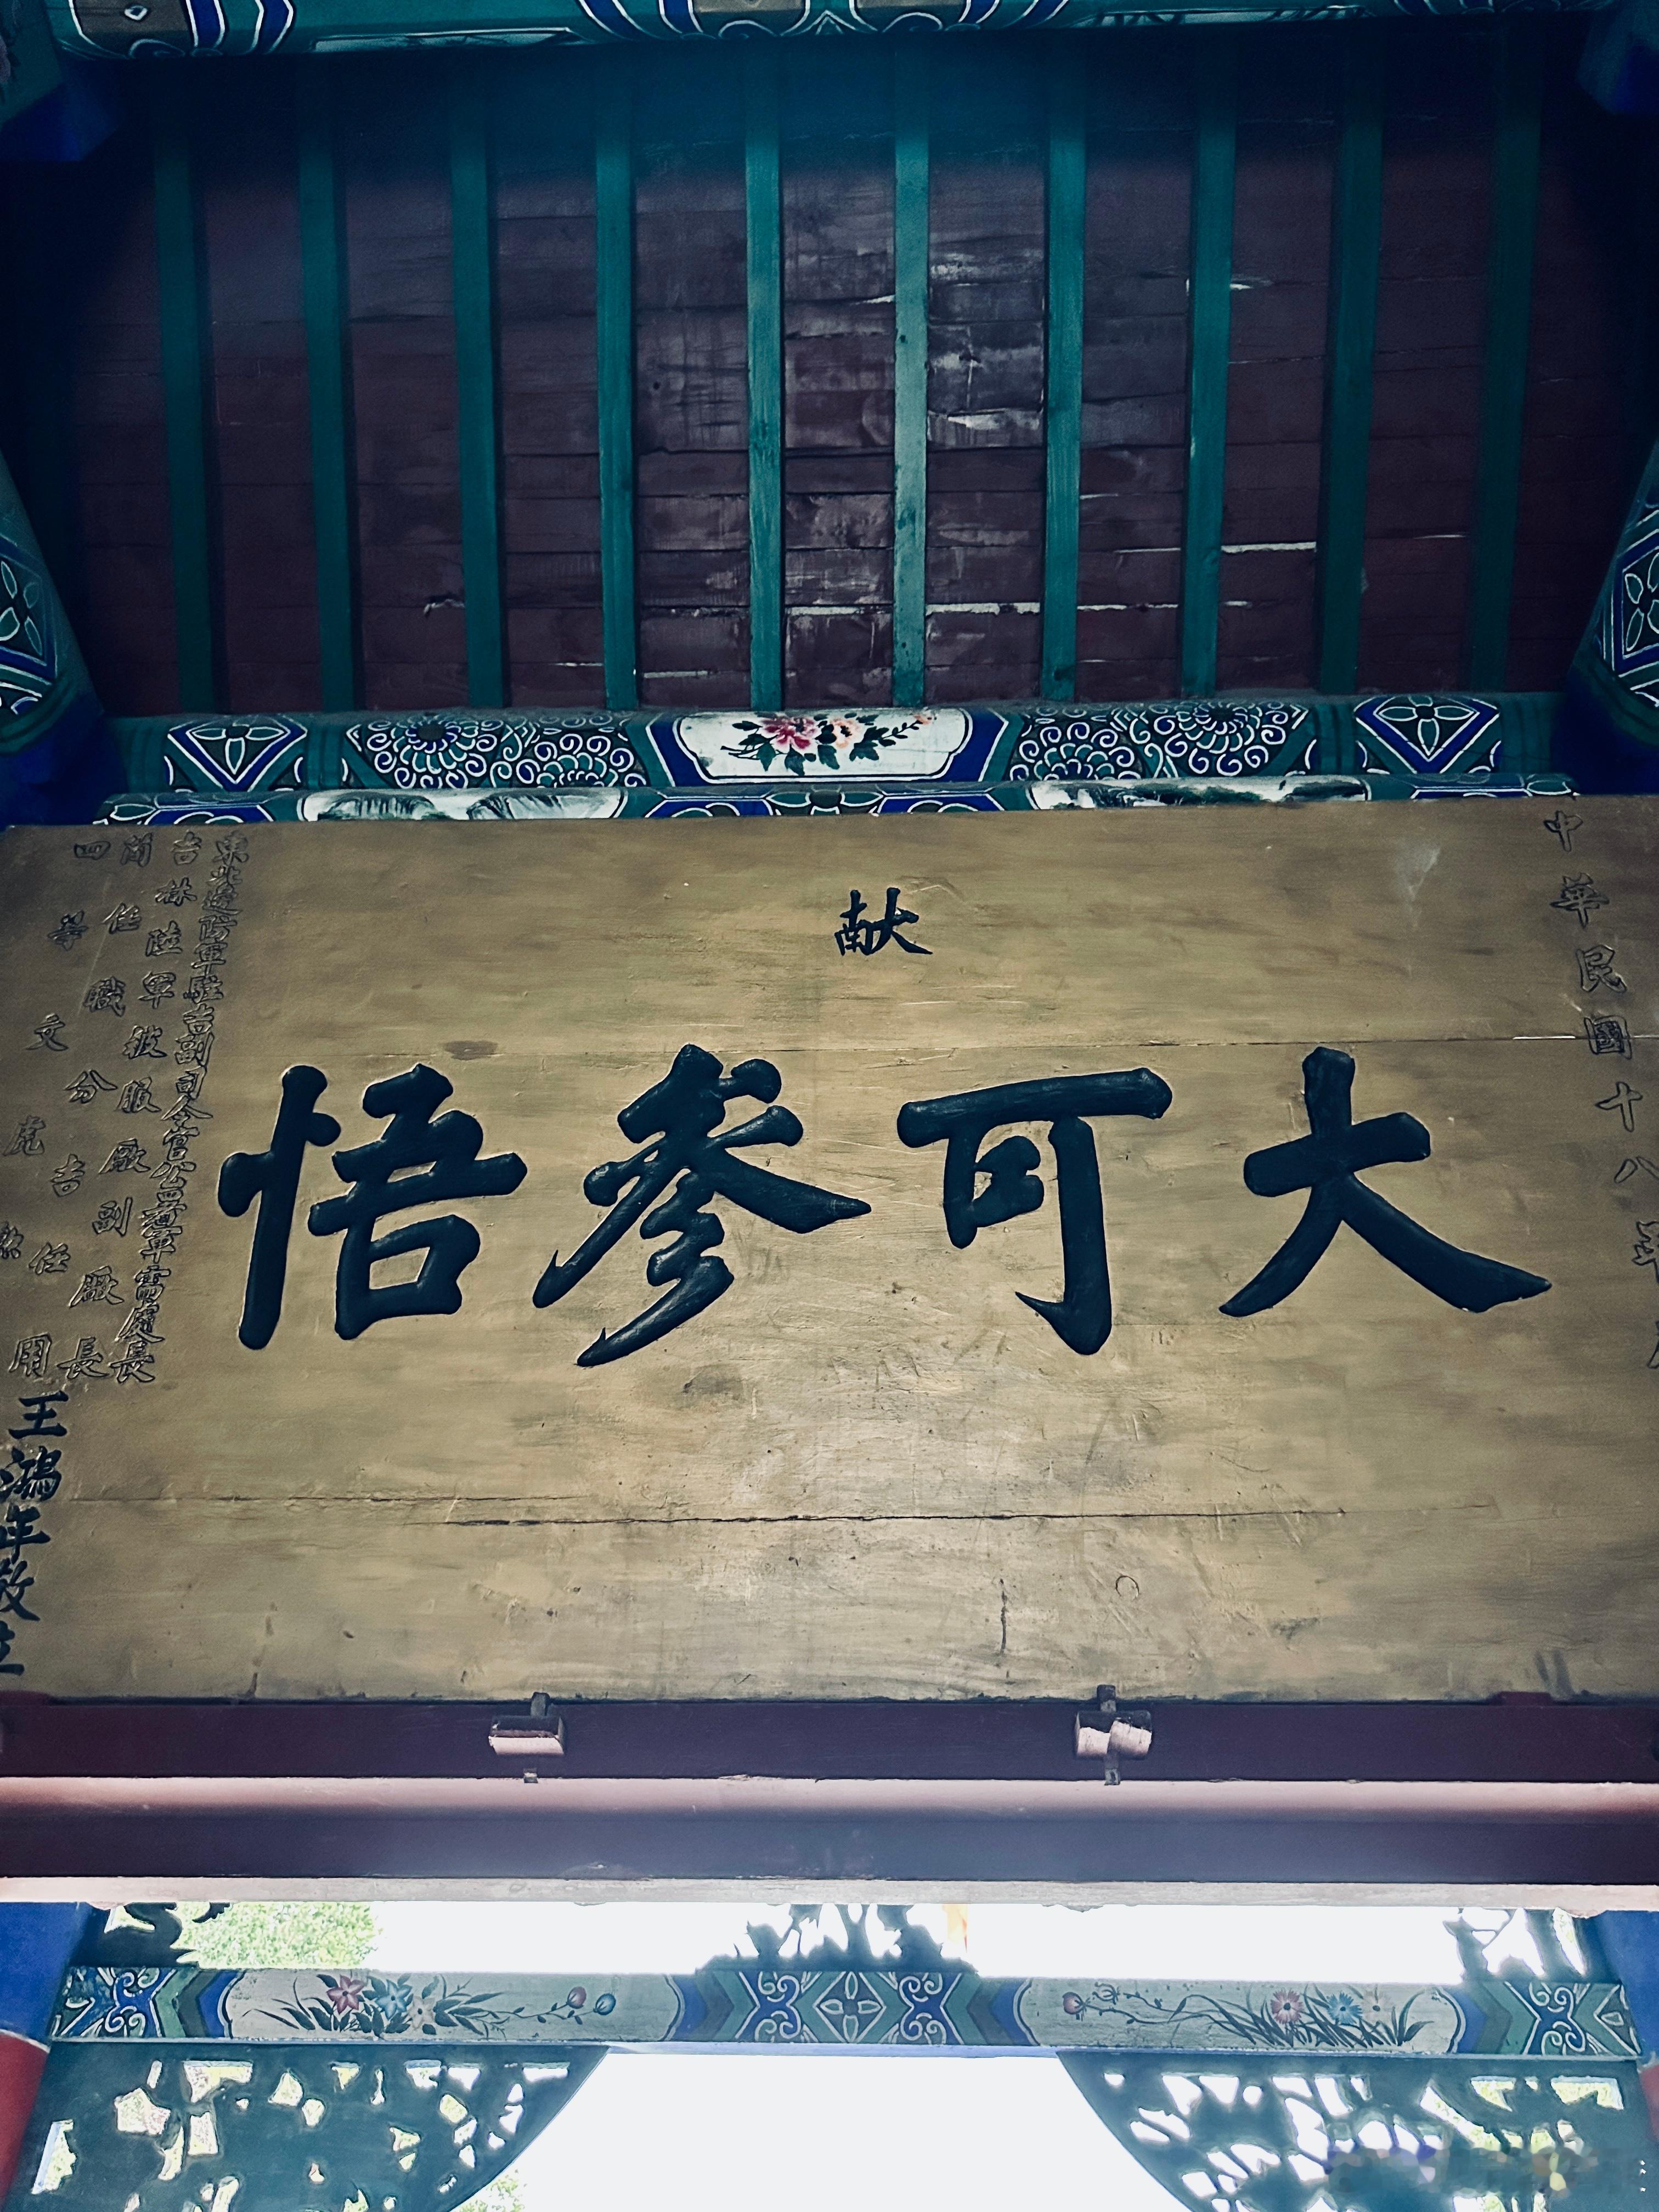 中華民國十八年
献
大可参悟
東北邊防軍駐吉副司令官公署軍需處長
吉林陸軍被服廠副廠長
簡任職分吉任用
四等文虎
王鴻年敬立